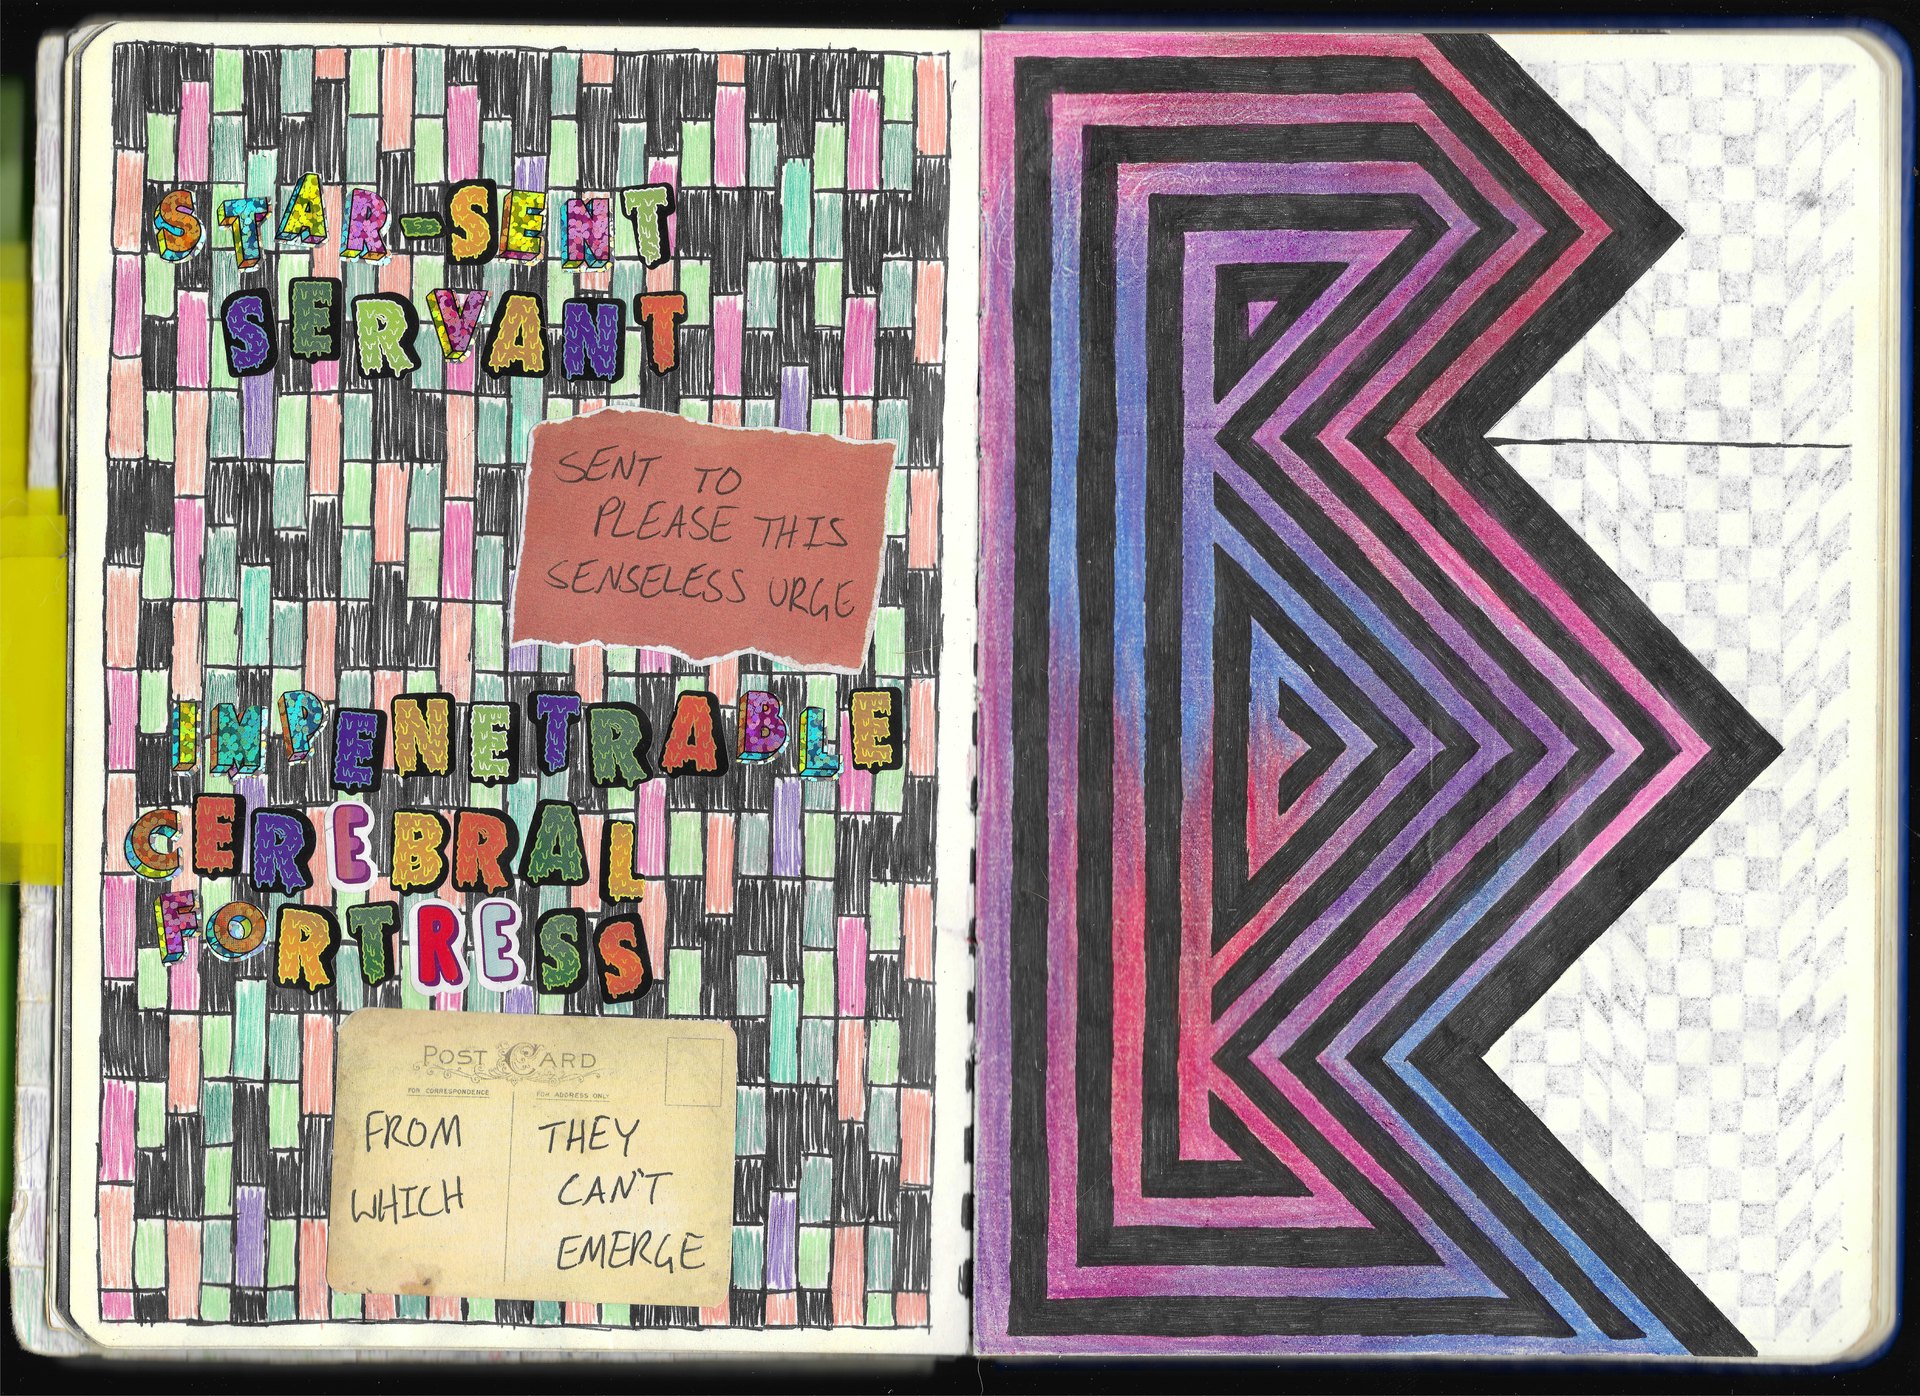 STAR-SENT
SERVANT
SENT TO
PLEASE THIS
SENSELESS URGE
IMPENETRABLE
CEREBRAL
FORTRESS
POST CARD
FOR CORRESPONDENCE
FOR ADDRESS ONLY
FROM
WHICH
THEY
CAN'T
EMERGE